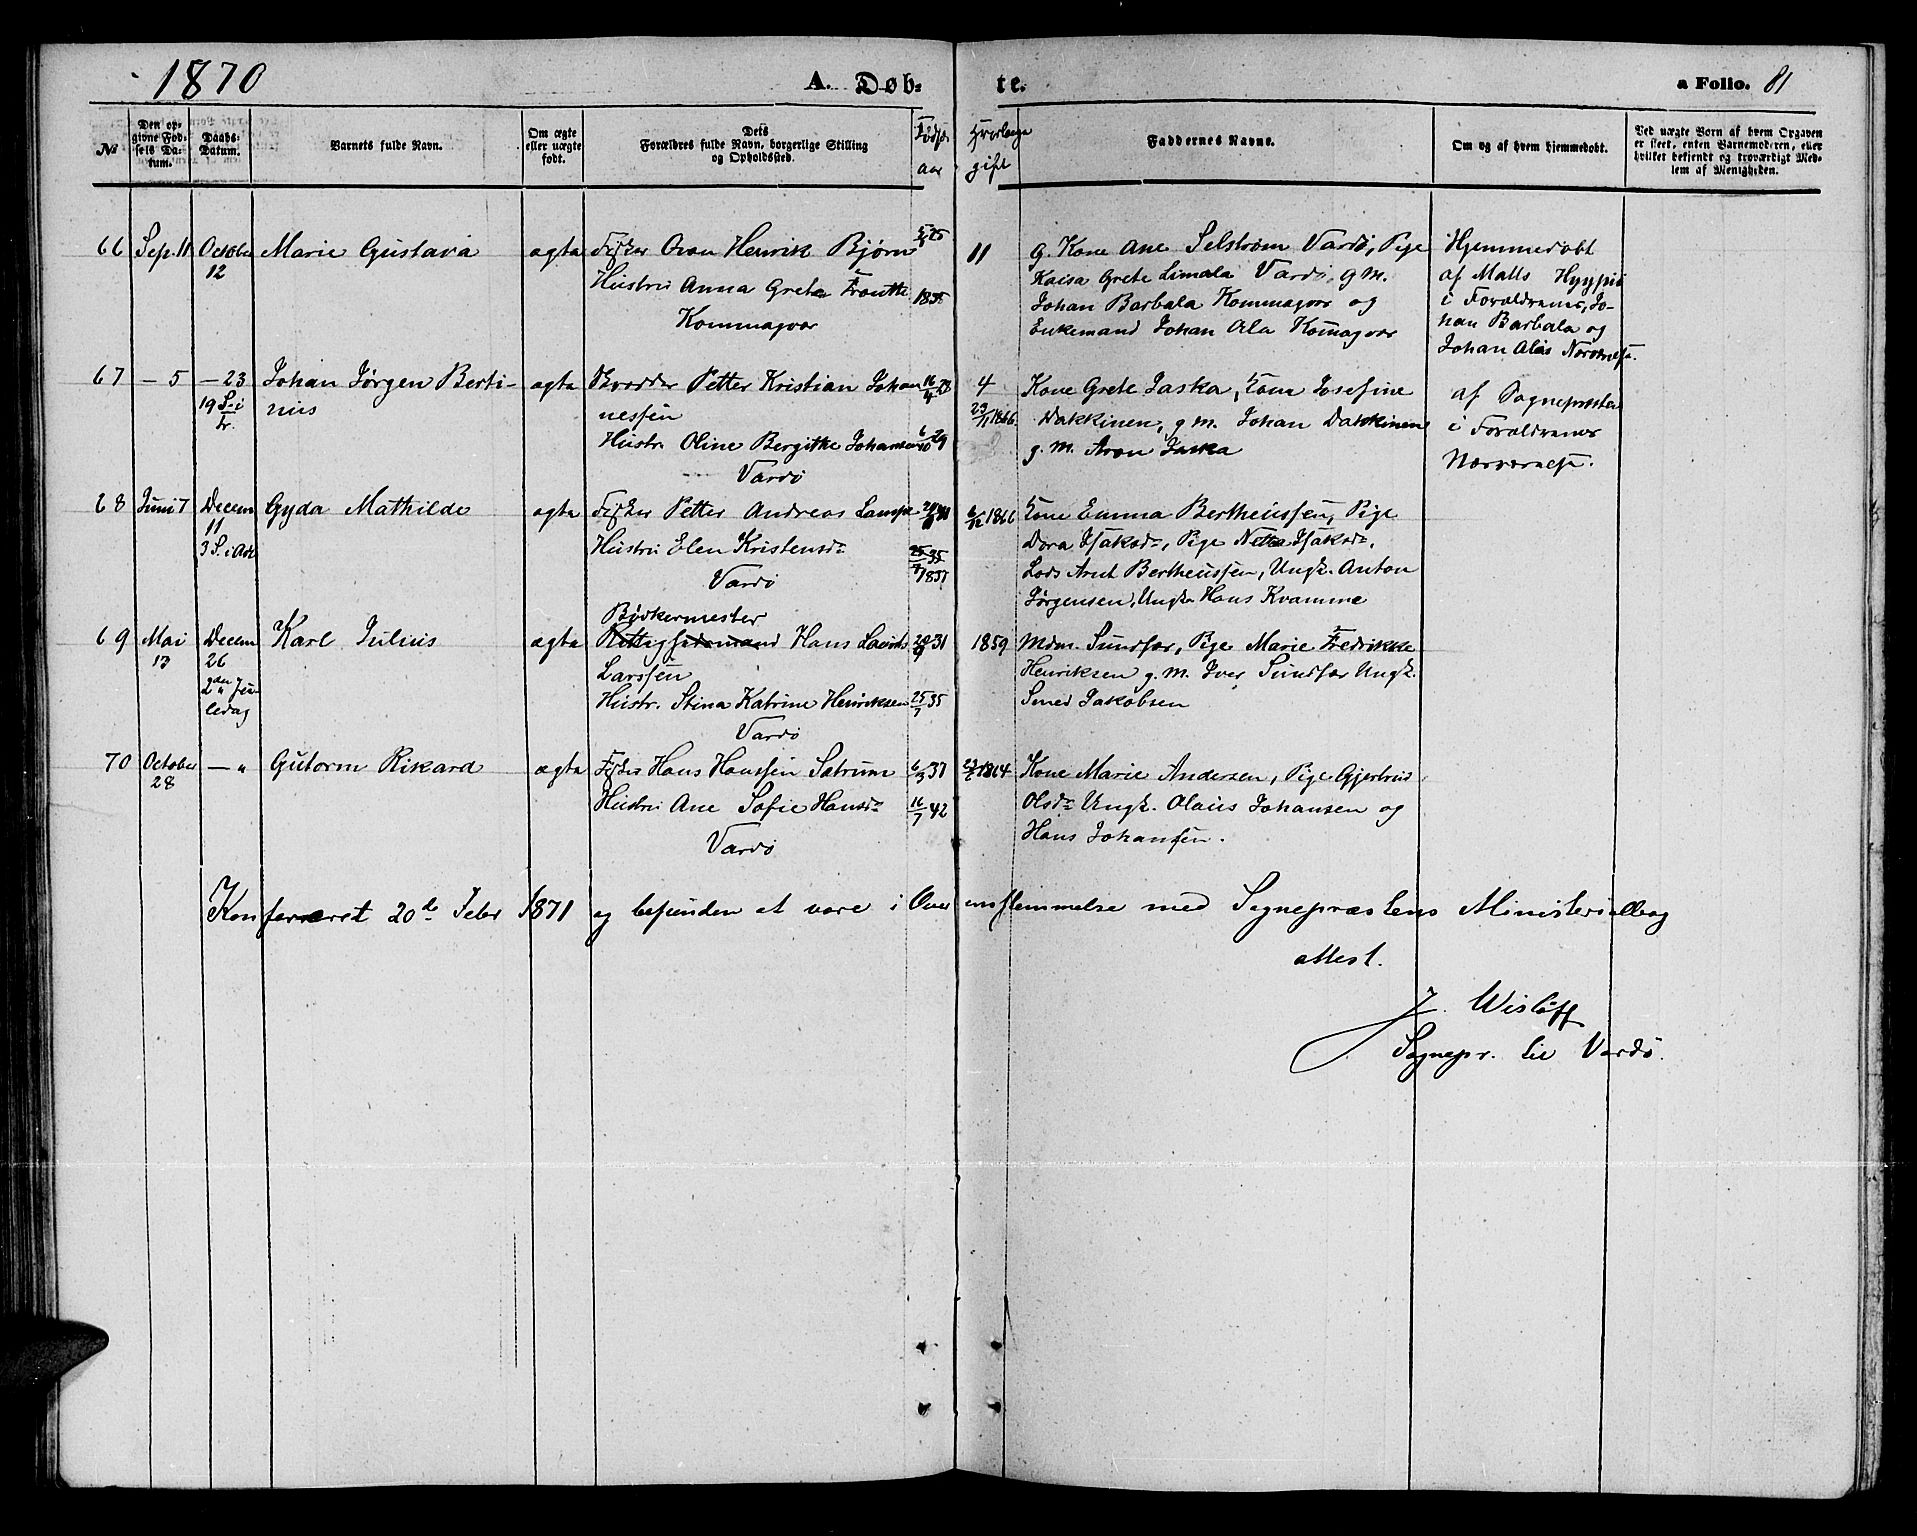 1870
A. Døb-
te.
a Folio. 81
№
Den op-
givne Fød-
sels Da-
tum.
Daabs-
Datum.
Barnets fulde Navn.
Om ægte
eller uægte
født.
Dets
Forældres fulde Navn, borgerlige Stilling
og Opholdssted.
Føds.
aar
Hvorlænge
gift
Faddernes Navne.
Om og af hvem hjemmedøbt.
Ved uægte Børn af hvem Opgaven
er skeet, enten Barnemoderen, eller
hvilket bekjendt og troværdigt Med-
lem af Menigheden.
66 Sep. 11 October
12
Marie Gustava
ægta
Fisker Aron Henrik Bjørn
Hustru Anna Greta
Kommagvær
11
g. Kone Ane Selstrøm Vardö, Pige
Kaisa Grete Limala Vardö, g m.
Johan Barbala Kommagvær og
Enkemand Johan Ala Komagvær
Hjemmedøbt
af Matts Hyypiö
i Forældrenes, Jo-
han Barbala og
Johan Alas
67 – 5 – 23
19 S. i
Tr.
Johan Jørgen Berti-
nius
ægta
Petter Kristian Johan
nessen
Hustr. Oline Bergitte Johansen
Vardö
4
1866.
Kone Grete Jaska, Kone Josefine
Dakkinen, g m. Johan Dakkinen
g. m. Aron Jaska
af Sognepræsten
i Forældrenes
Nærværelse.
68 Juni 7 Decem
11
3 S. i Adv
Gyda Mathilde
ægta
Fisker Petter Andreas
Hustru Elen Kristensdr
Vardö
6/12 1866
Kone Emma Bertheussen, Pige
Dora Isaksdr, Pige Netta Isaksdr,
Lods Arnt Bertheussen, Ungk. Anton
Jørgensen, Ungk Hans Kvamme
69 Mai
13
Decem
26
2den Ju-
ledag
Karl Julius
ægta
Bødkermester
Rettighedsmand Hans
Larssen
Hustr. Stina Katrine Henriksen 25/7 35
Vardö
1859
Mdm. Sundfær, Pige Marie Fredrikke
Henriksen g. m. Iver Sundfær Ungk.
Smed Jakobsen
70 October
28
– "
Gutorm Rikard
ægta
Fisker Hans Hanssen Sätrum 37
Hustru Ane Sofie Hansdr 16/7 42
Vardö
1864
Kone Marie Andersen, Pige Gjertrud
Olsdr Ungk. Olaus Johansen og
Hans Johansen.
Konfereret 20de Febr 1871 og befunden at være i Overensstemmelse med Sognepræstens Ministerialbog
attest.
J. Wisløff
Sognepr. til Vardö.